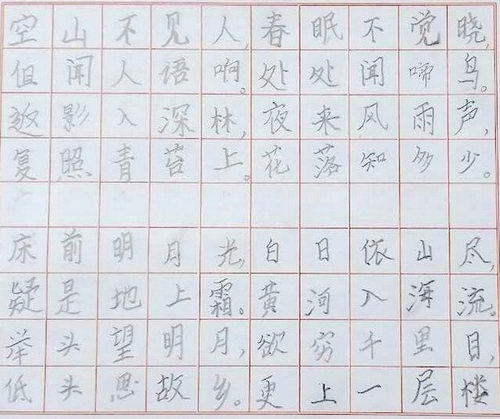 空山不见人,春眠不觉晓,
但闻人语响。处处闻啼鸟。
返影入深林,夜来风雨声,
复照青苔上。花落知多少。
床前明月光,白日依山尽,
疑是地上霜。黄河入海流。
举头望明月,欲穷千里目,
低头思故乡。更上一层楼